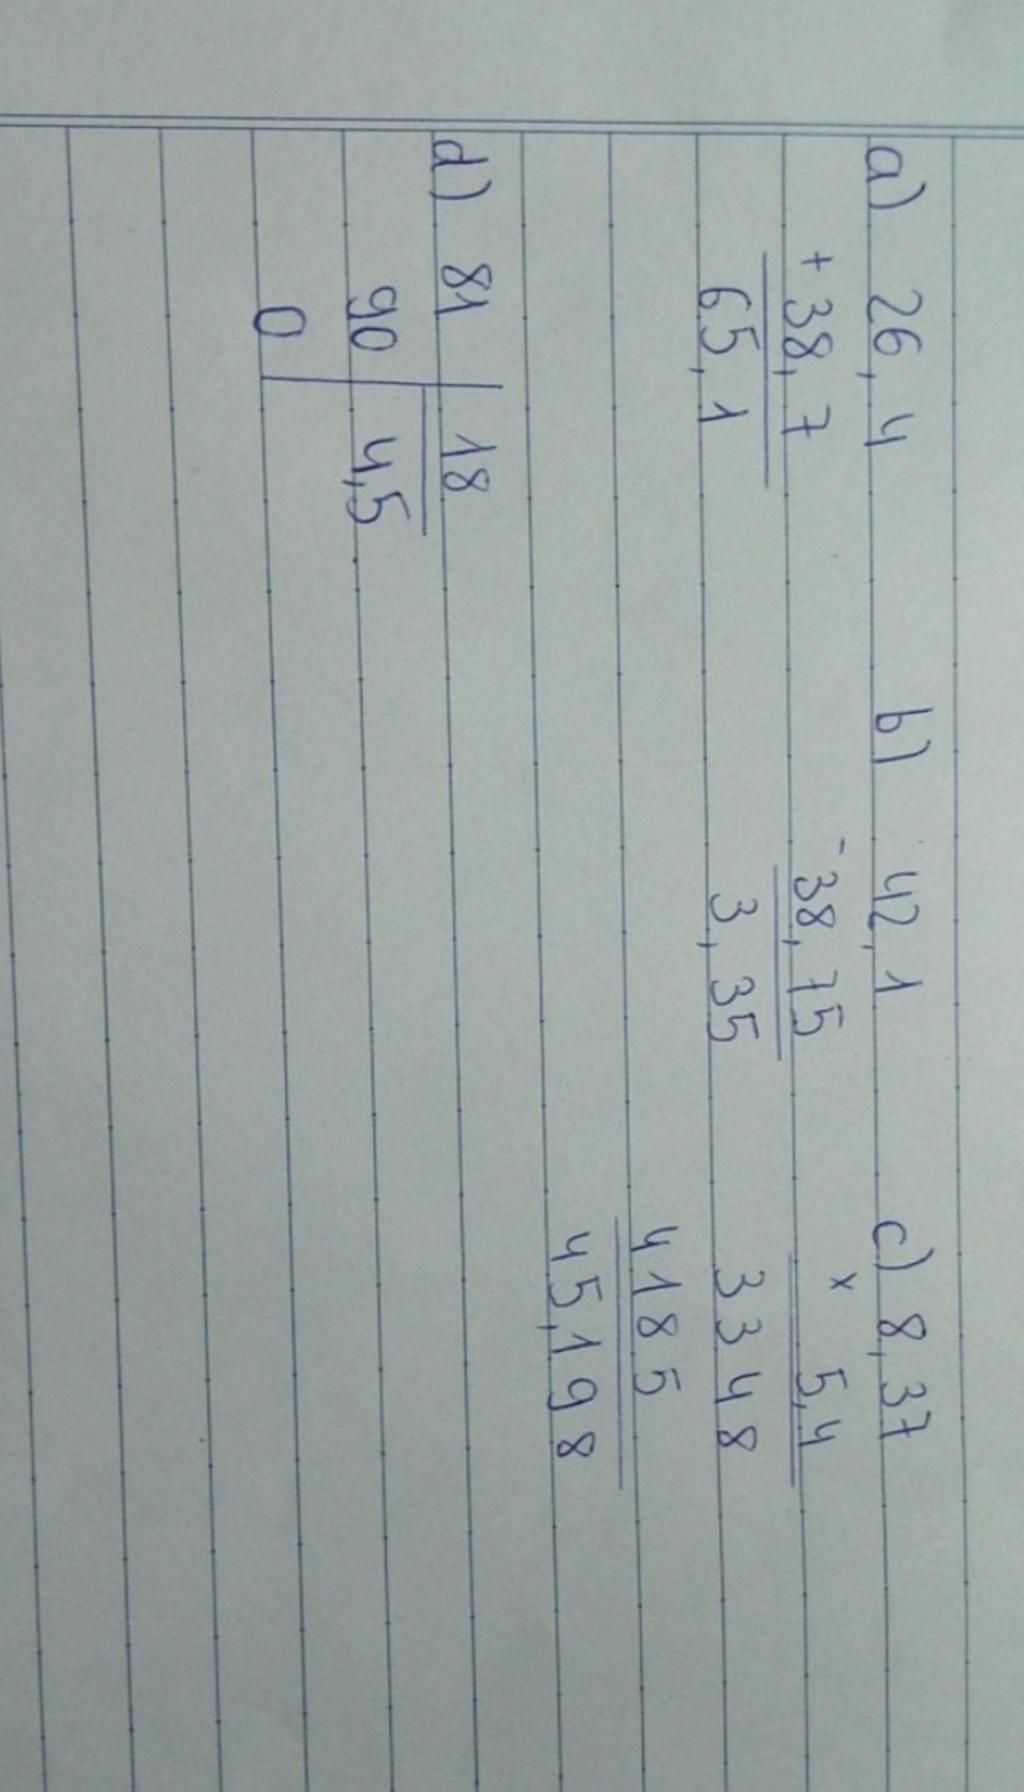 a) 26,4 b) 42,1 c) 8,37
+ 38,7 - 38,75 x 5,4
65,1 3,35 3348
4185
45,198
d) 81 18
90 4,5
0